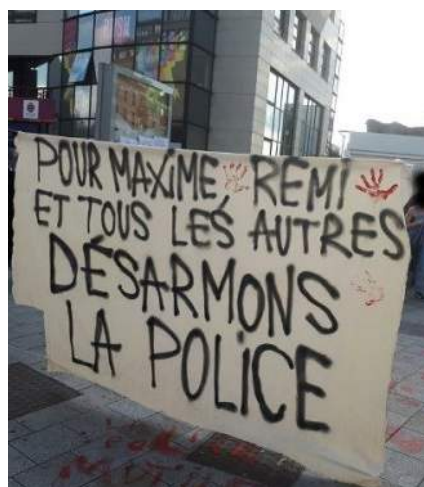 POUR MAXIME, RÉMI
ET TOUS LES AUTRES
DÉSARMONS
LA POLICE